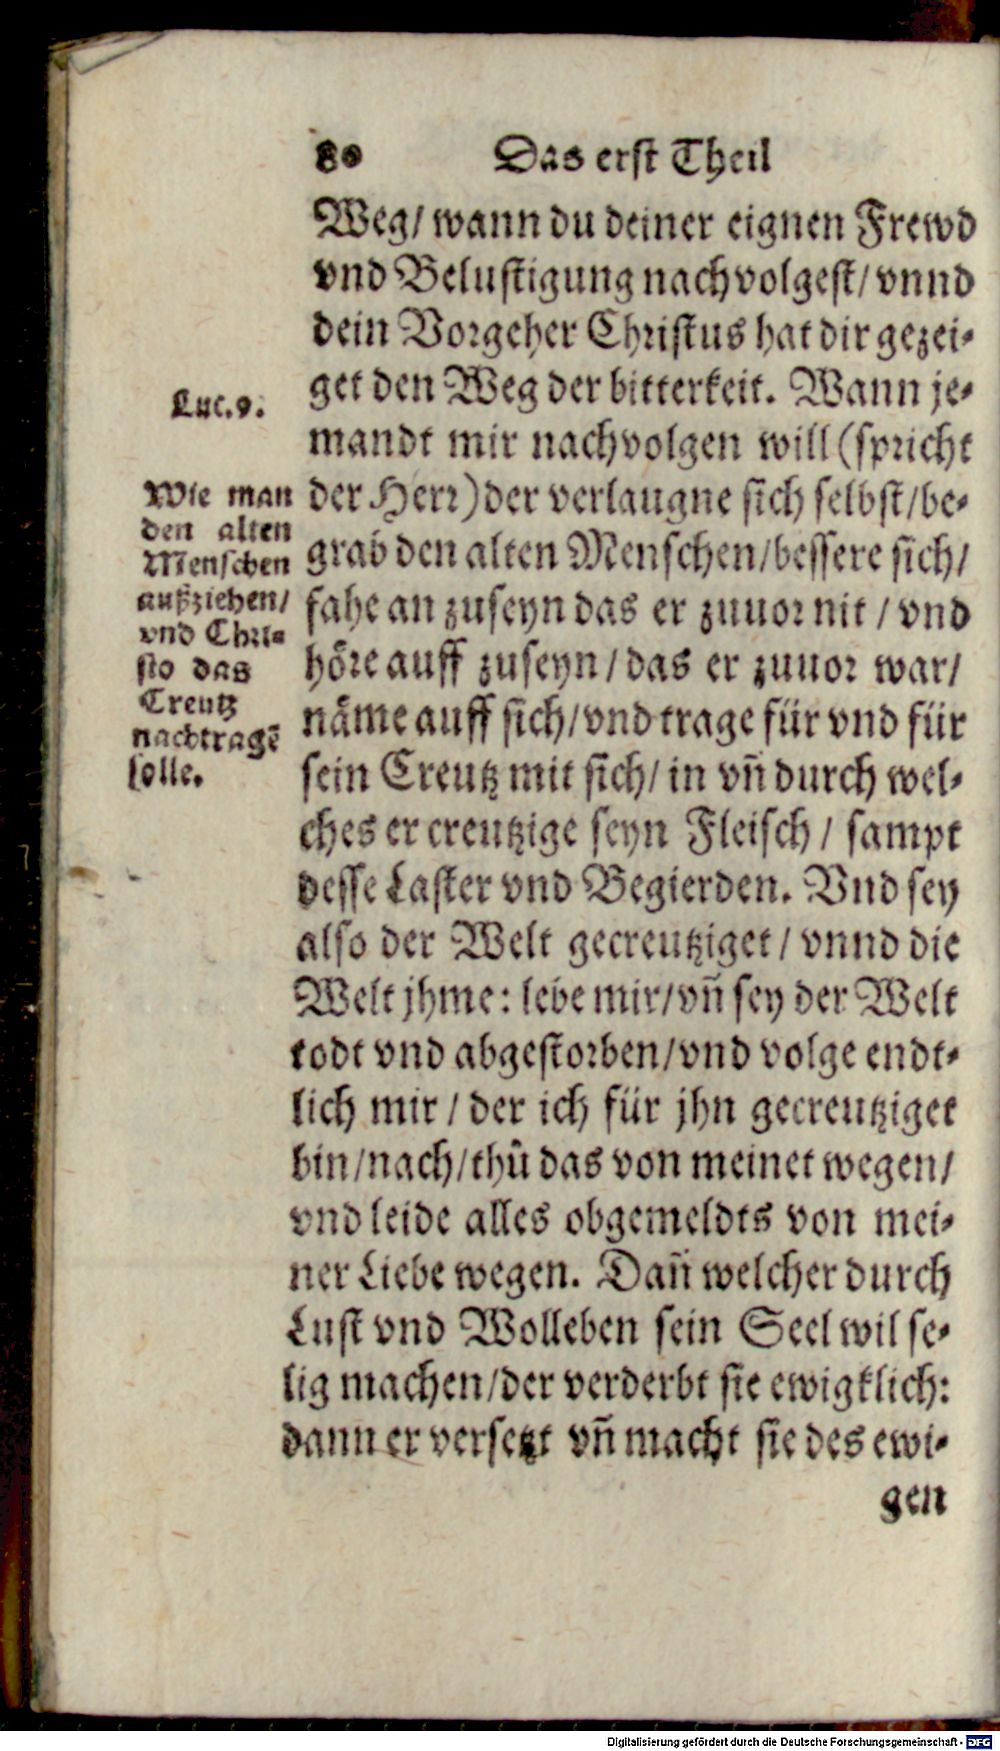 80 Das erst Theil
Weg/ wann du deiner eignen Frewd
vnd Belustigung nachvolgest/ vnnd
dein Vorgeher Christus hat dir gezei-
get den Weg der bitterkeit. Wann je-
mandt mir nachvolgen will (spricht
der Herr) der verlaugne sich selbst/ be-
grab den alten Menschen/ bessere sich/
fahe an zuseyn das er zuuor nit / vnd
höre auff zuseyn/ das er zuuor war/
näme auff sich/ vnd trage für vnd für
sein Creutz mit sich/ in vñ durch wel-
ches er creutzige seyn Fleisch / sampt
desse Laster vnd Begierden. Vnd sey
also der Welt gecreutziget / vnnd die
Welt jhme: lebe mir/ vñ sey der Welt
todt vnd abgestorben/ vnd volge endt-
lich mir / der ich für jhn gecreutziget
bin/ nach/ thů das von meinet wegen/
vnd leide alles obgemeldts von mei-
ner Liebe wegen. Dañ welcher durch
Lust vnd Wolleben sein Seel wil se-
lig machen/ der verderbt sie ewigklich:
dann er versetzt vñ macht sie des ewi-
gen
Luc. 9.
Wie man
den alten
Menschen
außziehen/
vnd Chri-
sto das
Creutz
nachtragẽ
solle.
Digitalisierung gefördert durch die Deutsche Forschungsgemeinschaft - DFG